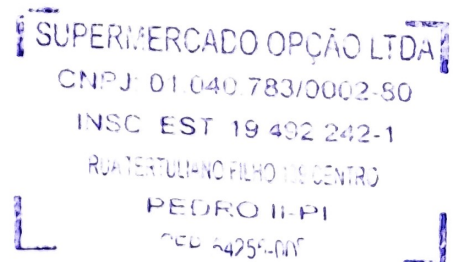 SUPERMERCADO OPÇÃO LTDA
CNPJ 01.040.783/0002-80
INSC EST 19 492 242-1
RUA TERTULIANO FILHO CENTRO
PEDRO II-PI
CEP